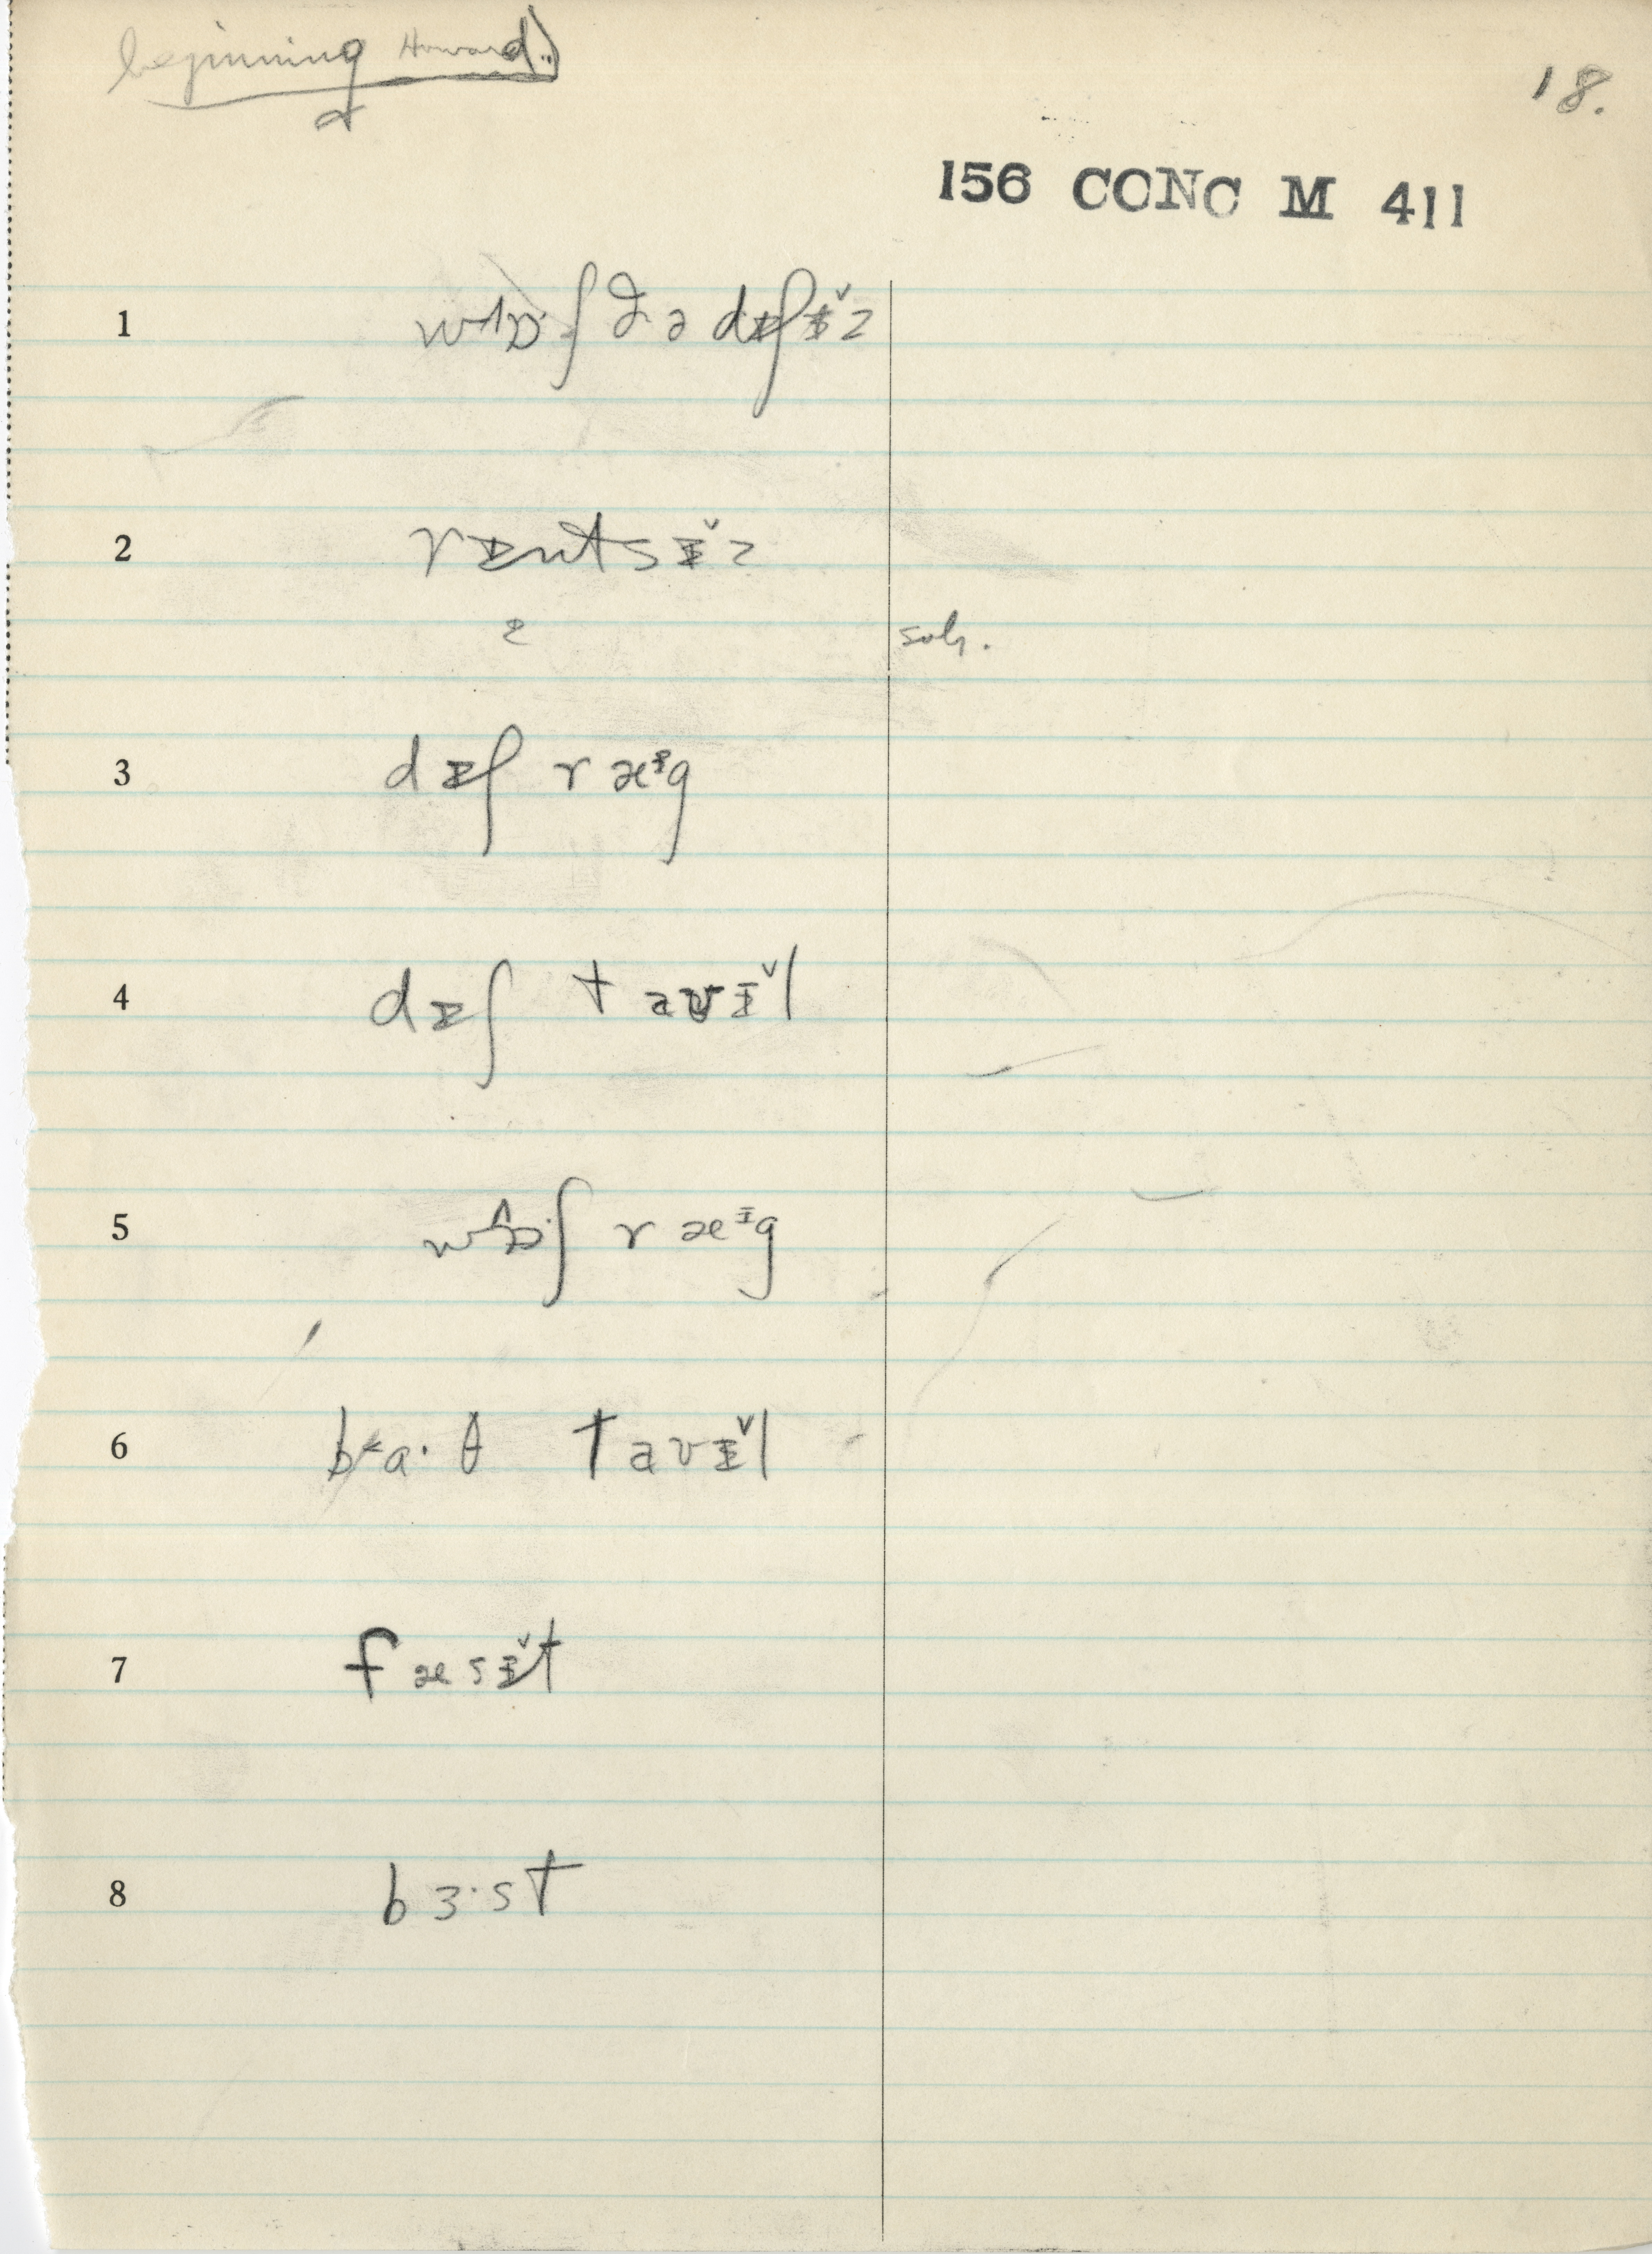 beginning Howard.
18.
156 CONC M 411
1 wʌɒ·ʃ ðə dɪʃɪ̆z
2 rɪntsɪ̆z
3 dɪʃ ræᶦg
4 dɪʃ taʊɪ̆l
5 wʌɒ·ʃ ræᶦg
6 ba·θ taʊɪ̆l
7 fæsɪ̆t
8 bɜ·st